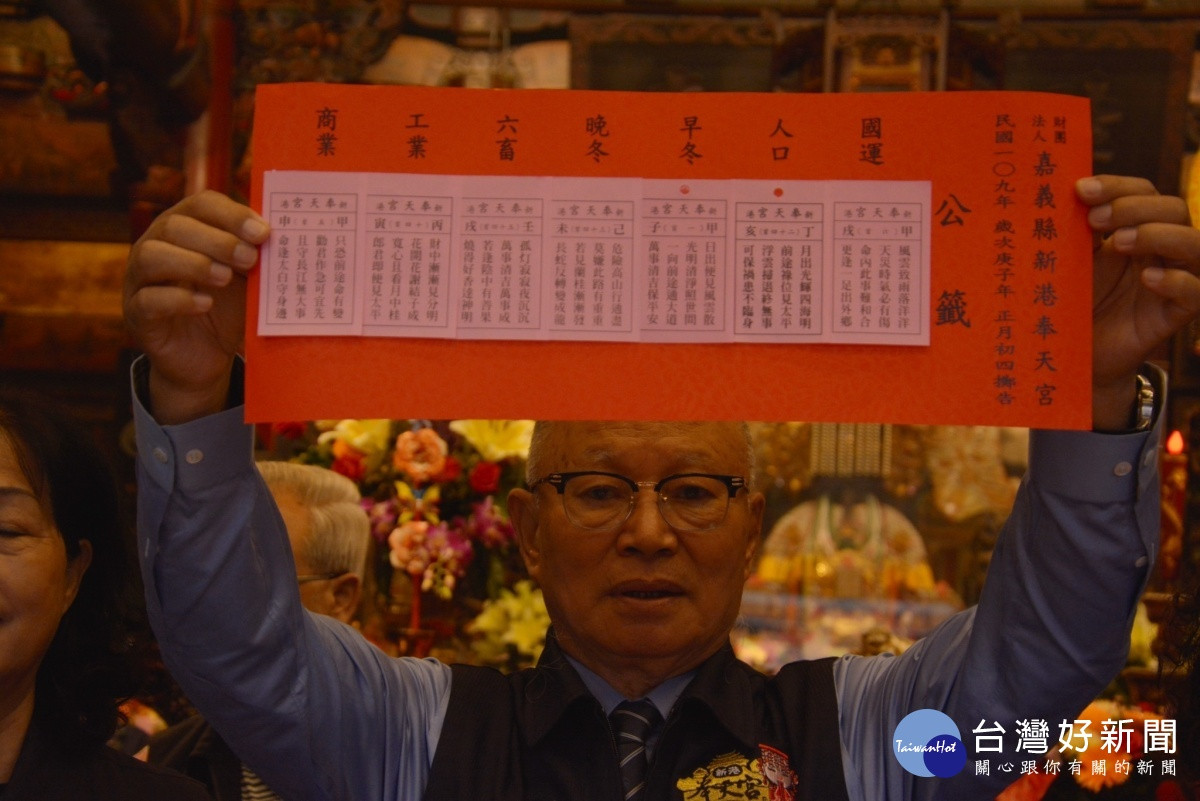 財團
法人
嘉義縣新港奉天宮
民國一〇九年 歲次庚子年 正月初四擲告
公籤
國運
人口
早冬
晚冬
六畜
工業
商業
新港奉天宮
甲戌
風雲致雨落洋洋
天災時氣必有傷
命內此事難和合
更逢一足出外鄉
新港奉天宮
丁亥
月出光輝四海明
前途祿位見太平
浮雲掃退終無事
可保禍患不臨身
新港奉天宮
甲子
日出便見風雲散
光明清淨照世間
一向前途通大道
萬事清吉保平安
新港奉天宮
己未
危險高山行過盡
莫嫌此路有重重
若見蘭桂漸漸發
長蛇反轉變成龍
新港奉天宮
壬戌
孤灯寂寂夜沉沉
萬事清吉萬事成
若逢陰中有善果
燒得好香達神明
新港奉天宮
丙寅
財中漸漸見分明
花開花謝結子成
寬心且看月中桂
郎君即便見太平
新港奉天宮
甲申
只恐前途命有變
勸君作急可宜先
且守長江無大事
命逢太白守身邊
新港
奉天宮
TaiwanHot
台灣好新聞
關心跟你有關的新聞